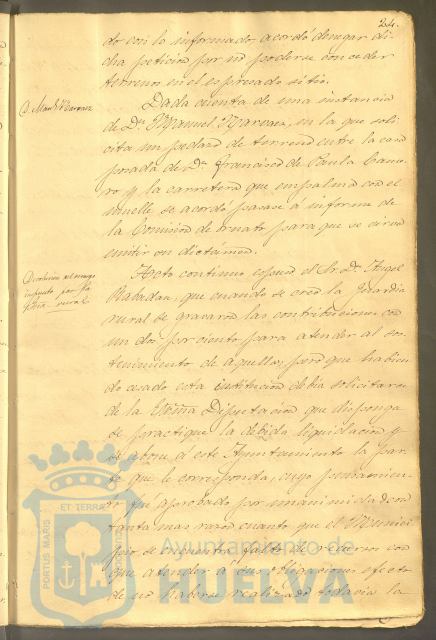 24.
do con lo informado acordó denegar di-
cha peticion por no poderse conceder
terrenos en el espresado sitio.
Dada cuenta de una instancia
de Dn. Manuel Narvaez, en la que soli-
cita un pedazo de terreno entre la cas
porada de Dn. Francisco de Paula
y la carretera que empalma con el
muelle se acordó pasase á informe de
la Comision de ornato para que se sirva
emitir su dictámen.
Acto continuo espuso el Sr. Dn. Angel
Rabadan, que cuando se creó la Guardia
rural se gravaron las contribuciones con
un dos por ciento para atender al sos-
tenimiento de aquella, pero que habien-
do cesado esta institucion debia solicitarse
de la Excma Diputacion que disponga
se practique la debida liquidacion y
se abone á este Ayuntamiento la par-
te que le corresponda, cuyo pensamien-
to fué aprobado por unanimidad con
tanta mas razon cuanto que el Munici-
pio se encuentra falto de recursos con
que atender á sus obligaciones efecto
de no haberse realizado todavia la
D. Manl. Narvaez
impuesto por
rural
PORTUS MARIS
ET TERRÆ
CUSTODIA
Ayuntamiento de
HUELVA